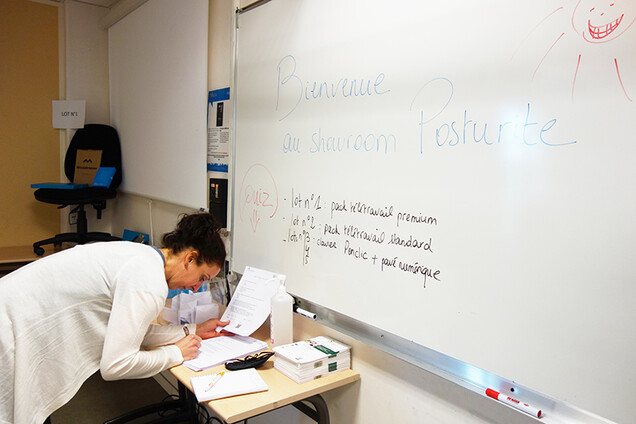 LOT N°1
Bienvenue
au showroom Posturite
QUIZ
- lot n°1 : pack télétravail premium
- lot n°2 : pack télétravail standard
- lots n°3 : clavier Penclic + pavé numérique
4
5